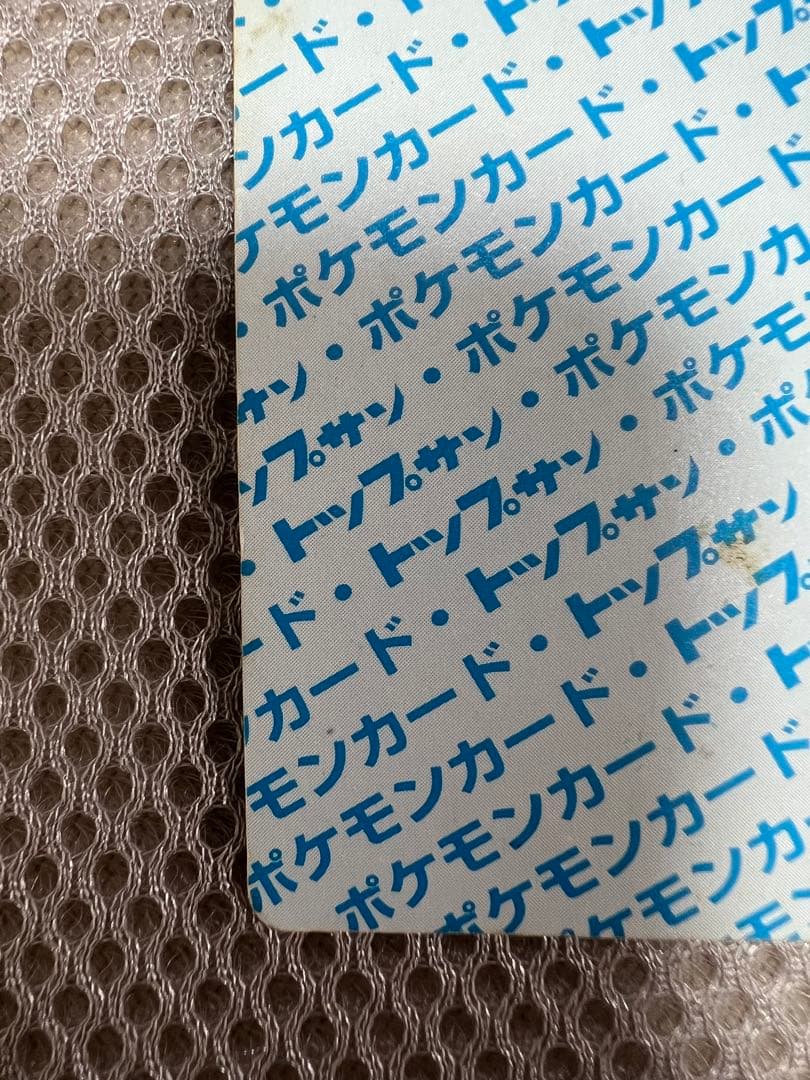 ード・
ンカード・トッ
ケモンカード・トップ
・ポケモンカード・トップ
サン・ポケモンカード・ト
ップサン・ポケモンカード
・トップサン・ポケモンカ
ード・トップサン・ポケモ
カード・トップサン・ポ
モンカード・トップサン
ポケモンカード・トップ
ポケモンカード・ト
ポケモンカード
ケモンカ
モ